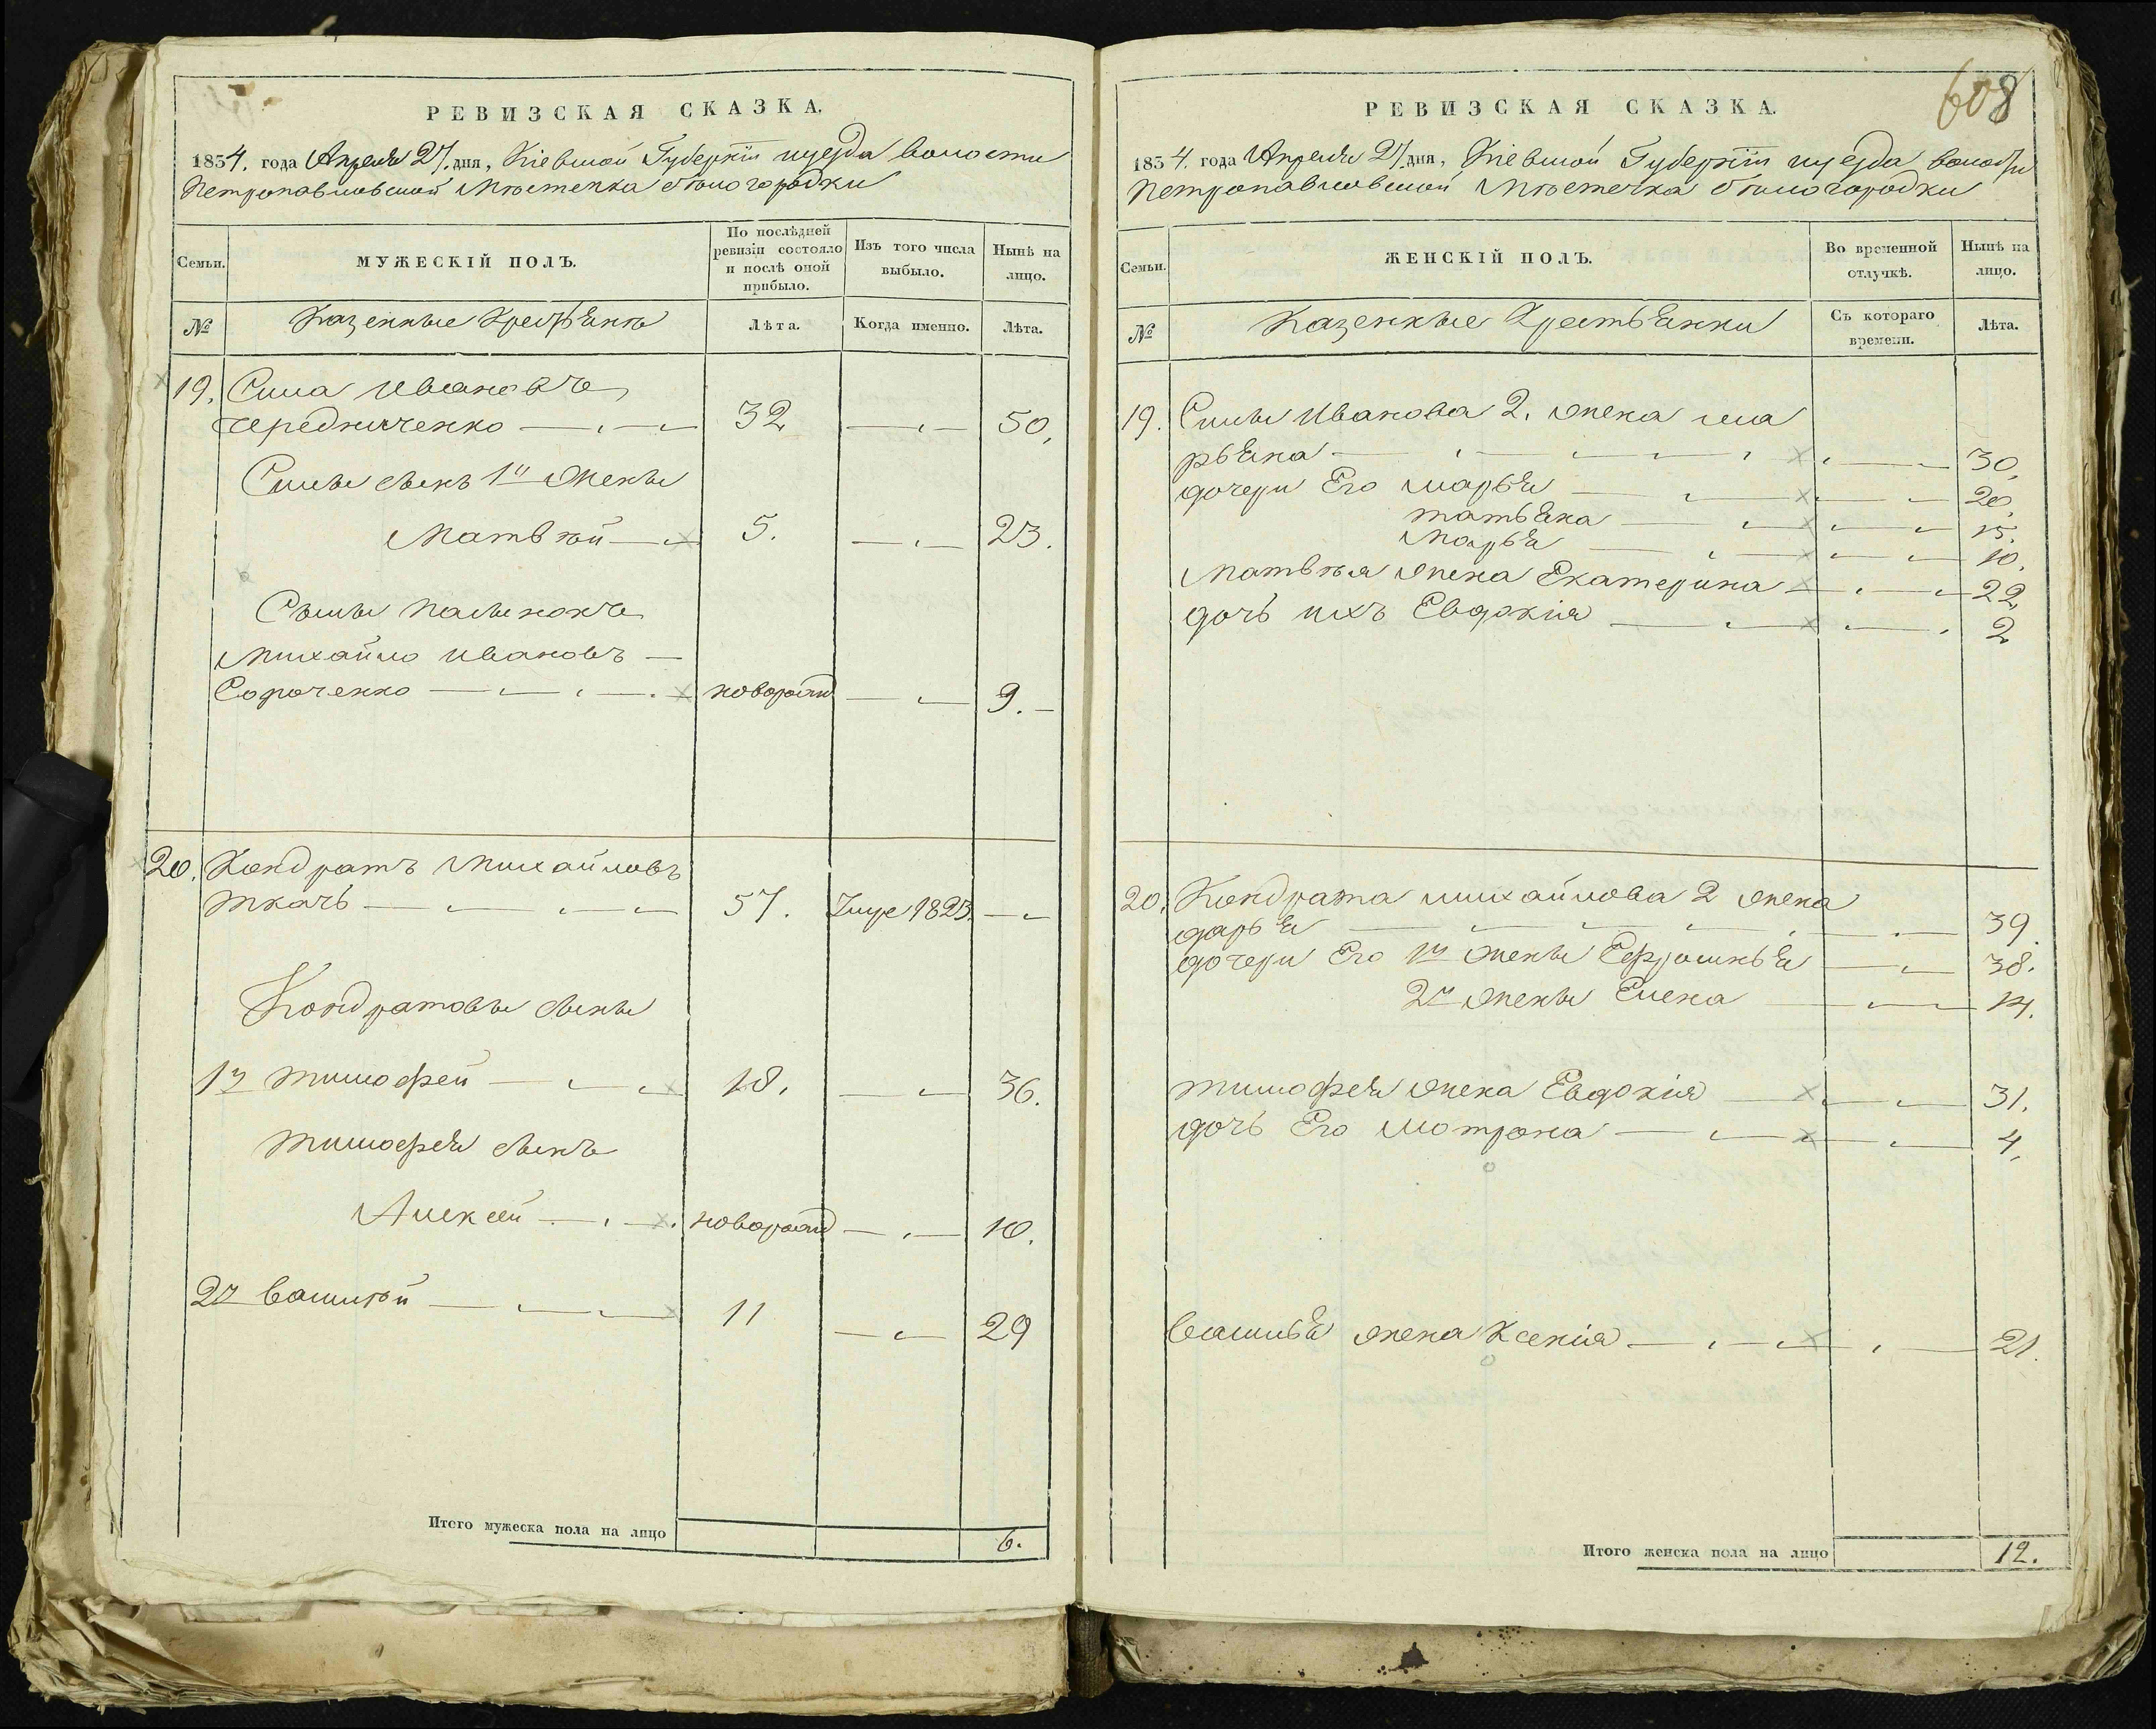 РЕВИЗСКАЯ СКАЗКА.
1834. года Апреля 27. дня, Кіевской Губерніи и уезда волости
Петропавловской Мѣстечка Бѣлогородки
Семьи.
МУЖЕСКІЙ ПОЛЪ.
По послѣдней ревизіи состояло и послѣ оной прибыло.
Изъ того числа выбыло.
Нынѣ на лицо.
№
Казенные Крестьянѣ
Лѣта.
Когда именно.
Лѣта.
19. Сила Ивановъ
Чередниченко 32 50.
Силы сынъ 1й жены
Матвѣй 5. 23.
Силы
Михайло Ивановъ
Сороченко новорожд 9.
20. Кондратъ Михайловъ
Ткачъ 57. 1823.
Кондратовы сыны
1й Тимофей 18. 36.
Тимофея сынъ
Алексей новорожд 10.
2й Василѣй 11 29
Итого мужеска пола на лицо 6.
608
РЕВИЗСКАЯ СКАЗКА.
1834. года Апреля 27. дня, Кіевской Губерніи и уезда волости
Петропавловской Мѣстечка Бѣлогородки
Семьи.
ЖЕНСКІЙ ПОЛЪ.
Во временной отлучкѣ.
Нынѣ на лицо.
№
Казенные Крестьянки
Съ котораго времени.
Лѣта.
19. Силы Иванова 2. жена Ма
рьяна 30.
дочери Его Марья 20.
Татьяна 15.
Марья 10.
Матвѣя жена Екатерина 22
дочь ихъ Евдокія 2
20. Кондрата Михайлова 2 жена
Дарья 39.
дочери Его 1й жены Ефросинья 38.
2й жены Елена 14.
Тимофея жена Евдокія 31.
дочь Его Мотрона 4.
Василья жена Ксенія 21.
Итого женска пола на лицо 12.